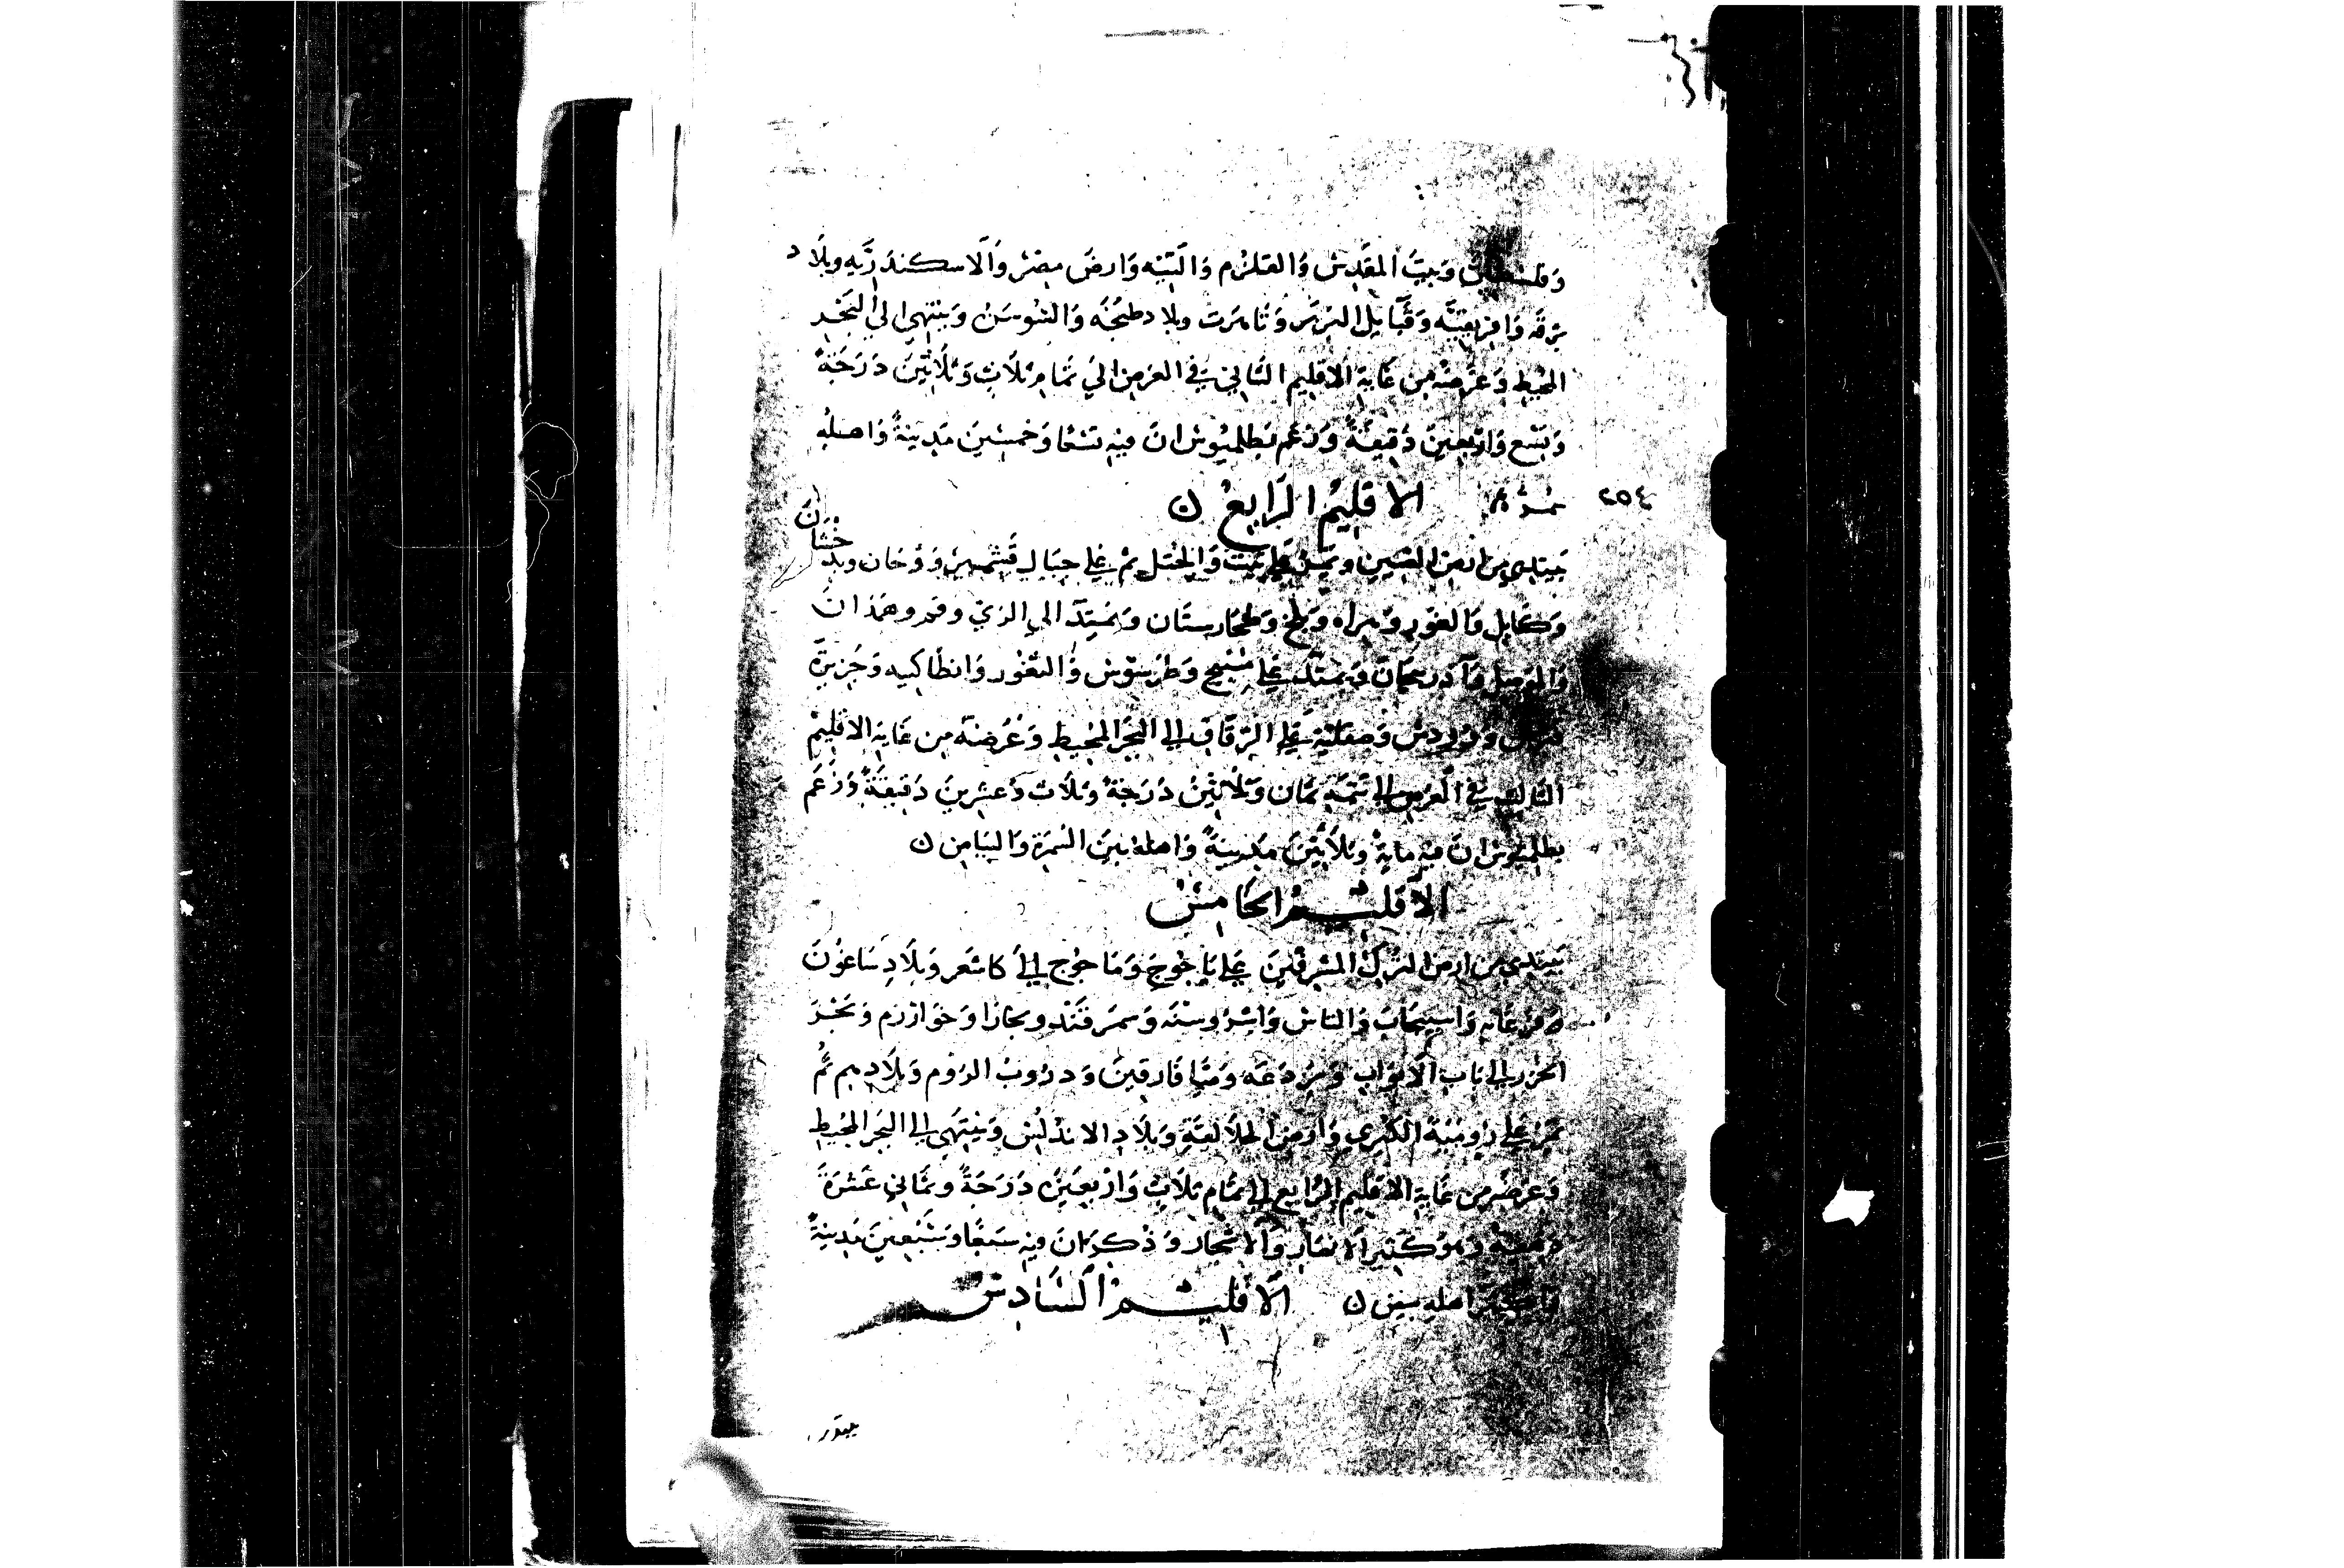 وفلسطين وَبيت المقَدِس وَالقلزم وَالتيه وَارض مِصْر وَالاسكندرَيه وبلَاد
برقه وَافريقيَّه وَقبَايل البربَر وَتاهرت وبلاد طنجَه وَالسُوسَ وَينتهي الي البَحر
المحيط وَعَرضه من غَاية الاقليم الثاني في العرض الي تمَام ثلَاث وَثلَاثينَ دَرَجَةً
وَتسْع وَاربعينَ دَقيقَةً وَزعَم بطلميُوس ان فيه تسْعًا وَخمسينَ مَدينَةً وَاهله
سُمْرٌ الاقليم الرَابع ن
٢٥٤
يَبتدي من ارض الصين ويمرّ على تبّت وَالختل ثم على جبَال قشمير وَوَخان وبدخشان
وَكَابل وَالغوَر وَهراه وَبلخ وطخارستَان وَيمتَدّ الي الرَي وقم وهَمذانَ
وَالموصل وَآذربيجان وَيمتدّ علي مَنْبج وَطرسُوس وَالثغُور وَانطاكيه وَجزيرَة
قبرس وَرودس وَصقليَه على الزقاق الي البَحر المحيط وَعَرضه من غَاية الاقليم
الثالث في العَرض الي تتمة ثمان وَثلَاثينَ دَرَجَة وثلَاث وَعشرينَ دَقيقَةً وَزعَم
بطلميُوس ان فيه مايَة وثلَاثينَ مَدينَةً وَاهله بينَ السُمرَة وَالبيَاض ن
الاقليم الخَامسْ
يَبتدي من ارض الترك المشرقينَ على يَاجُوج وَمَاجوج الي كاشغر وَبلَادسَاغُونَ
وَفرغَانه وَاسبيجَاب وَالشاش وَاشرُوسنَه وَسمرقند وبخارا وَخوَارزم وَبَحْر
الخزر الي بَاب الابوَاب وَبرذعَه وَميَّافارقين وَدرُوب الرُوم وَبلَادهم ثُم
يمرّ على رُوميَة الكبرى وَارض الجلَالقَة وَبلَاد الاندلس وَينتَهي الي البَحر المحيط
وَعرضه من غَاية الاقليم الرَابع الي تمَام ثلَاث وَاربعينَ دَرَجَةً وثماني عَشرَة
دَقيقَة وَهو كَثير الانهَار وَالاشجار وَذكر انَ فيه سَبعًا وَسَبعينَ مَدينَةً
وَاكثر اهله بيض ن الاقليم السَادسْ